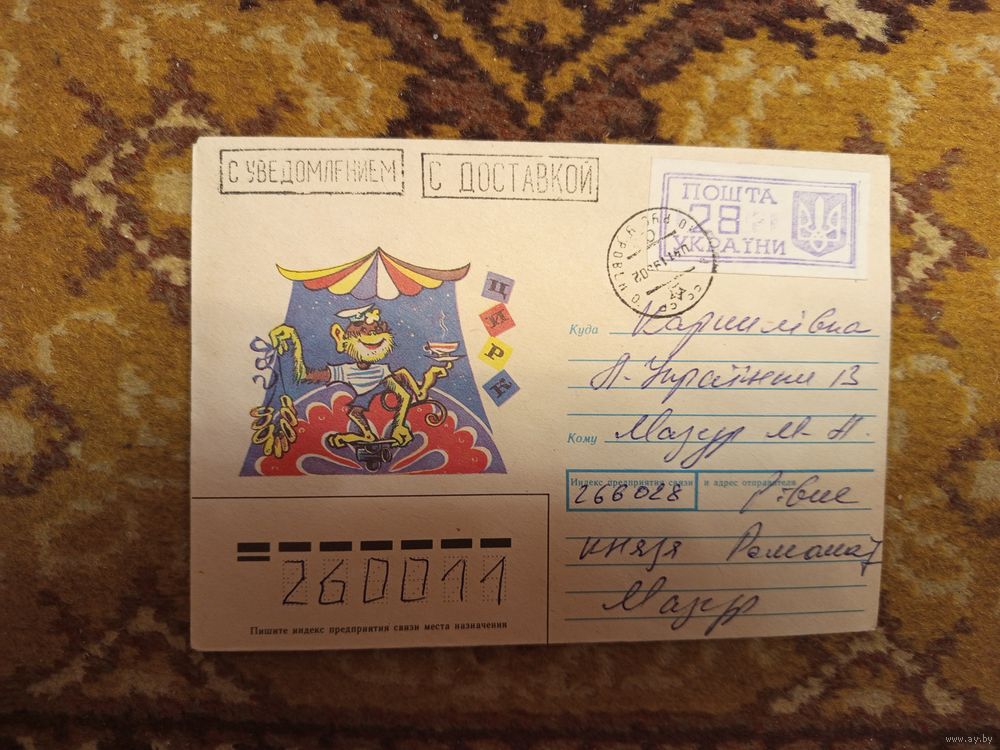 С УВЕДОМЛЕНИЕМ
С ДОСТАВКОЙ
ПОШТА
28
УКРАЇНИ
ЦИРК
Куда
Л. Українки 13
Кому Мазур М. Н.
Индекс предприятия связи и адрес отправителя
266028 Рівне
князя Романа 7
Мазур
260011
Пишите индекс предприятия связи места назначения
www.ay.by